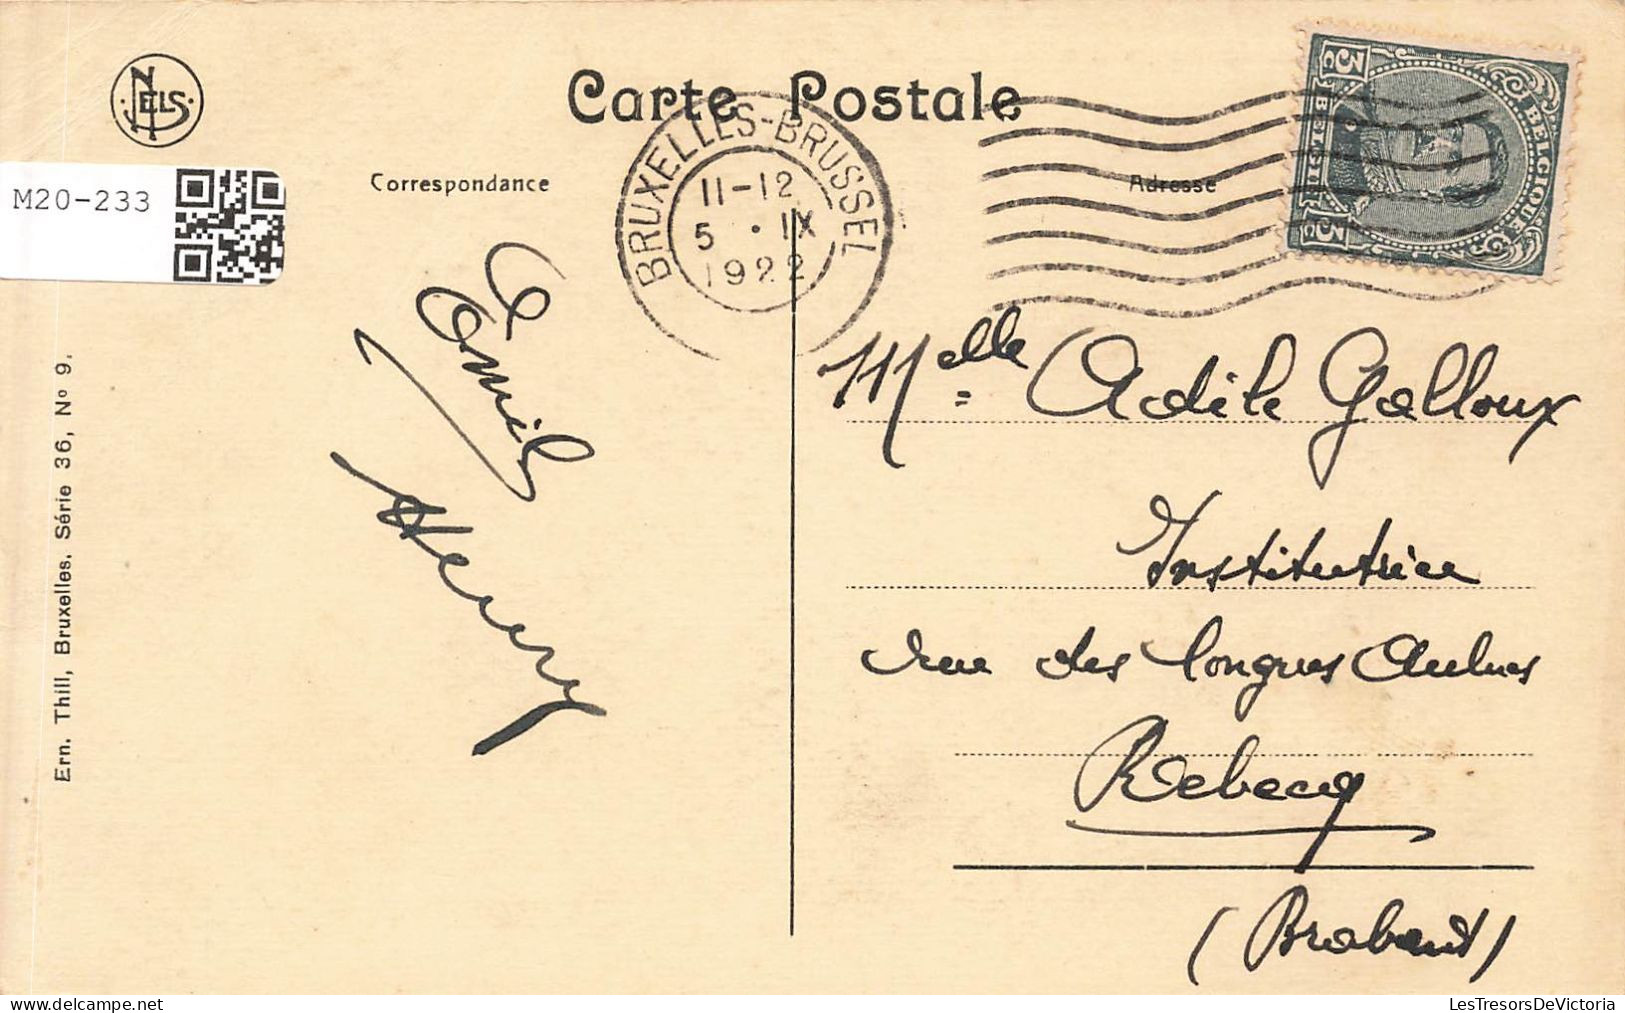 NELS
Carte Postale
M20-233
Correspondance
Adresse
BRUXELLES-BRUSSEL
11-12
5 · IX
1922
3c BELGIQUE
BELGIË 3c
Emile
Henry
Melle Adèle Galloux
Institutrice
rue des longues Aulnes
Rebecq
(Brabant)
Ern. Thill, Bruxelles. Série 36, No 9.
LesTresorsDeVictoria